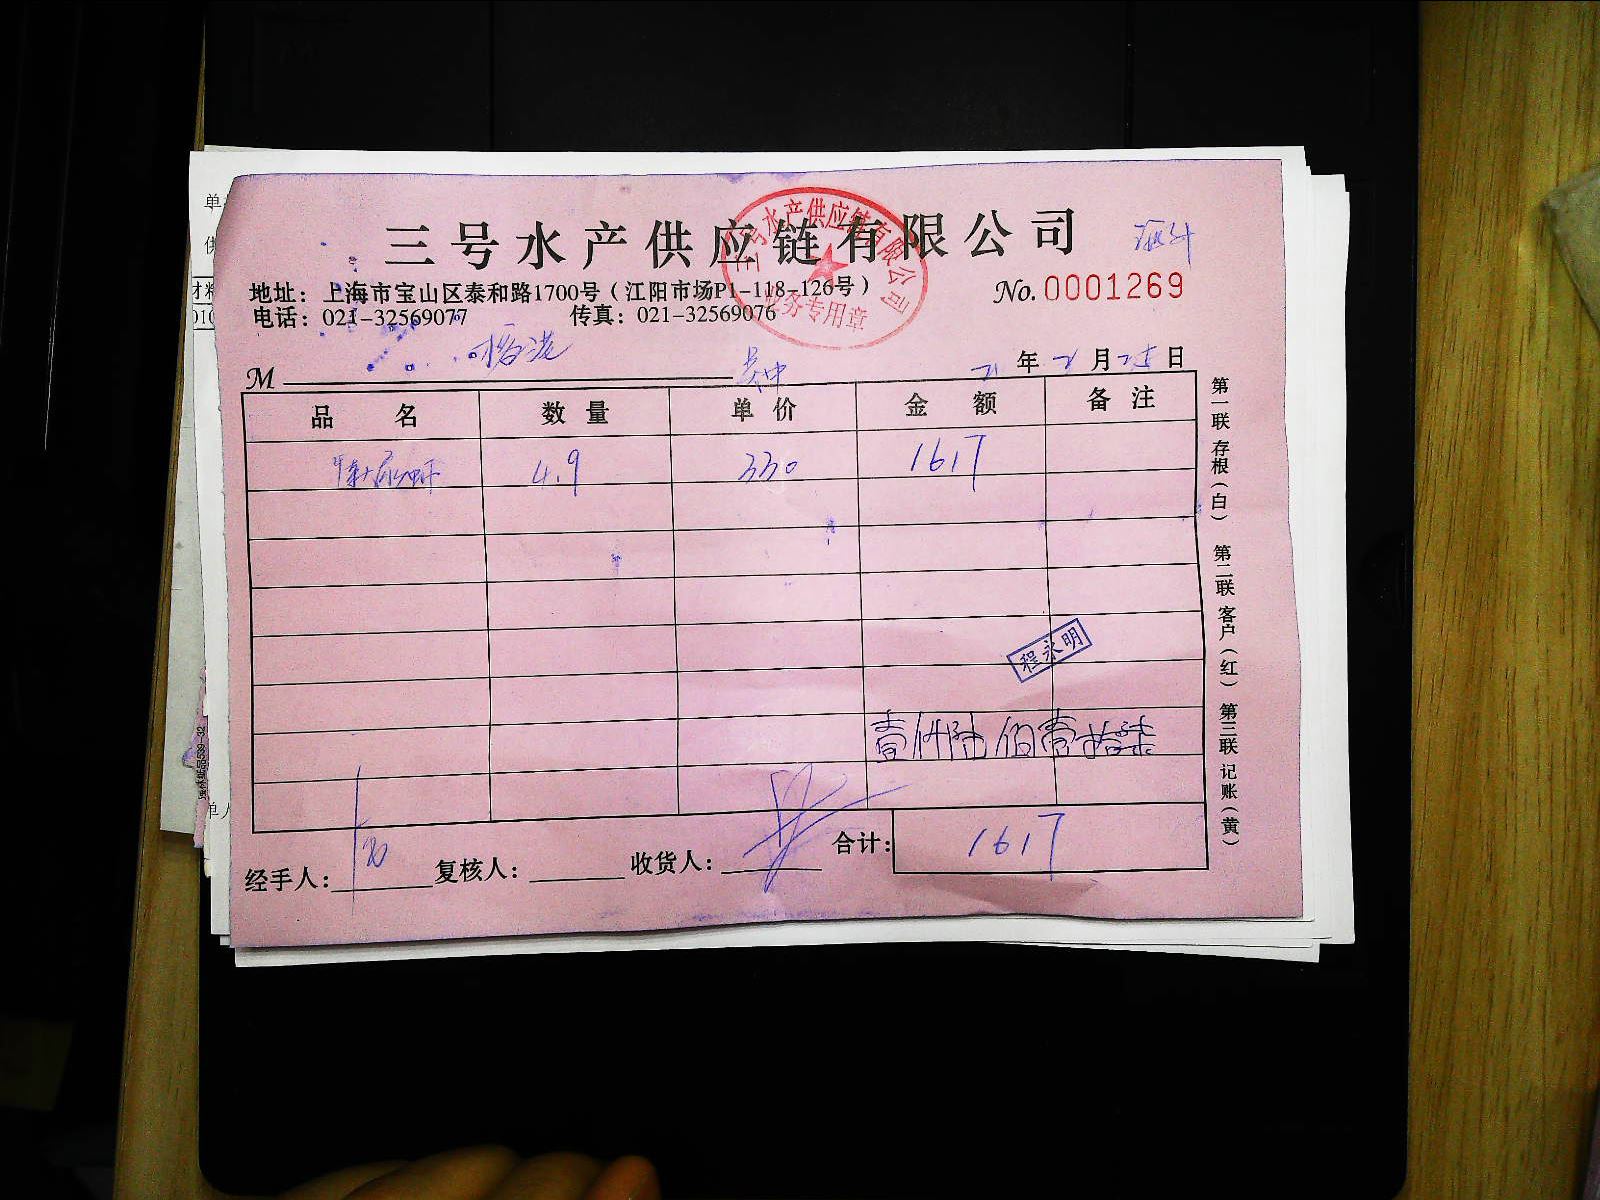 三号水产供应链有限公司
三号水产供应链有限公司
业务专用章
地址：上海市宝山区泰和路1700号（江阳市场P1-118-126号）
No. 0001269
电话：021-32569077 传真：021-32569076
M
21年2月25日
品名 数量 单价 金额 备注
4.9 330 1617
程永明
壹仟陆佰壹拾柒
经手人： 复核人： 收货人： 合计：1617
第一联 存根（白） 第二联 客户（红） 第三联 记账（黄）